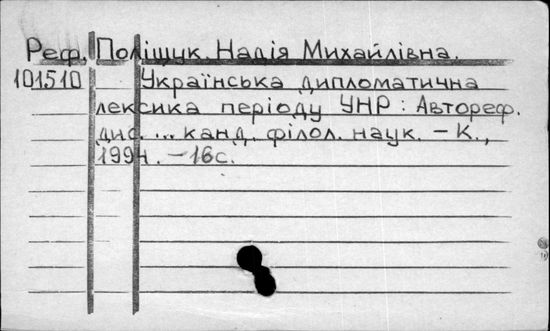 Реф. Поліщук Надія Михайлівна.
101510 Українська дипломатична
лексика періоду УНР : Автореф.
дис. ... канд. філол. наук. – К.,
1994. – 16с.